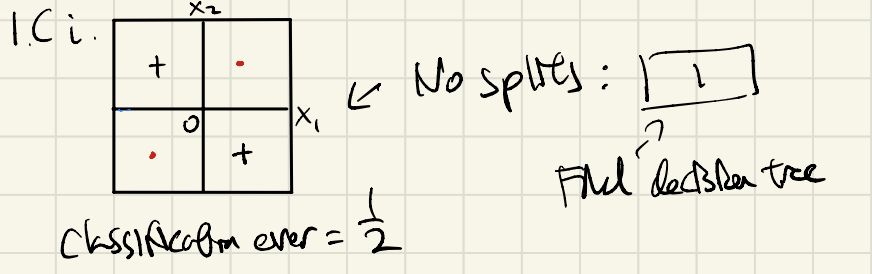 1.C i.
x2
+
No splits: 1
0
x1
+
Final decision tree
Classification error = 1/2